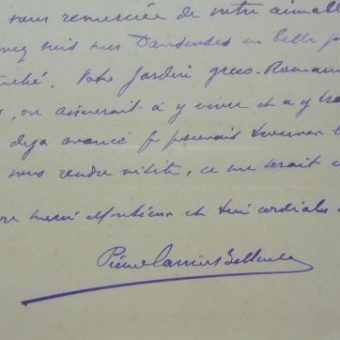 vous remercier de votre aimable
mis nos Danseuses en belle
. Votre Jardin greco-Romain
, on aimerait à y vivre et a y
deja avancé je pouvais trouver
vous rendre visite, ce me serait
merci Monsieur et très cordiales
Pierre Carrier Belleuse